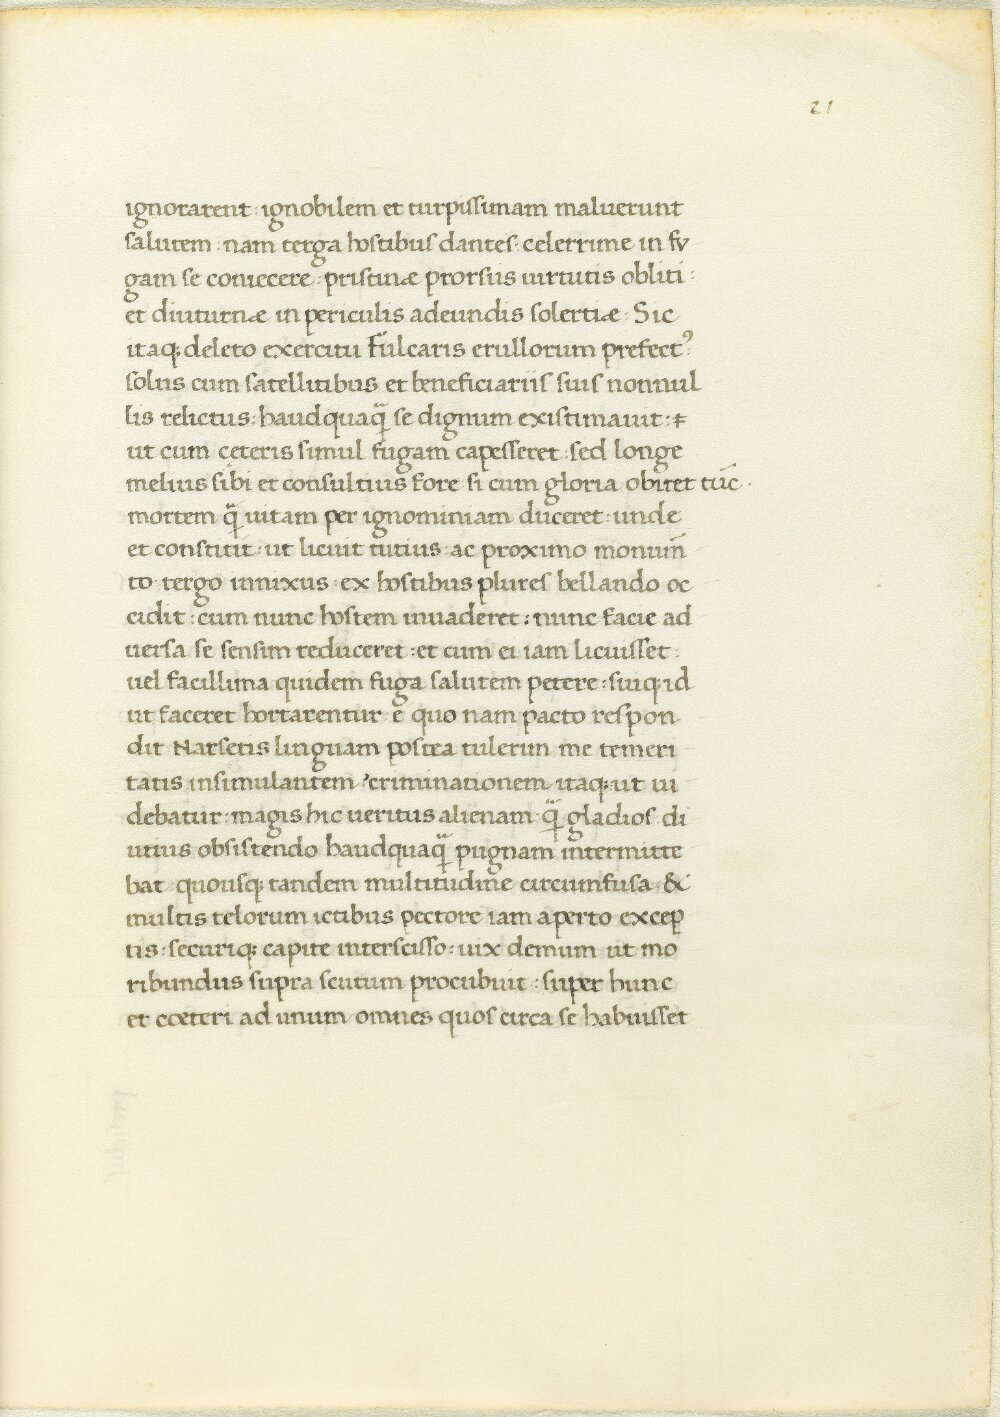 21
ignorarent : ignobilem et turpissimam maluerunt
salutem : nam terga hostibus dantes · celerrime in fu
gam se coniecere : pristinæ prorsus uirtutis obliti :
et diuturnæ in periculis adeundis solertiæ · Sic
itaq; deleto exercitu Fulcaris erullorum prefectꝰ :
solus cum satellitibus et beneficiariis suis nonnul
lis relictus : haudquaq̃ se dignum existimauit :
ut cum ceteris simul fugam capesseret : sed longe
melius sibi et consultius fore si cum gloria obiret tũc ·
mortem q̃ uitam per ignominiam duceret · unde
et constitit : ut licuit tutius · ac proximo monum̄
to tergo innixus · ex hostibus plures bellando oc
cidit : cum nunc hostem inuaderet : nunc facie ad
uersa se sensim reduceret : et cum ei iam licuisset :
uel facillima quidem fuga salutem petere : suiq; id
ut faceret hortarentur · e quo nam pacto respon
dit Narsetis linguam postea tulerim me temeri
tatis insimulantem · criminationem itaq; ut ui
debatur : magis hic ueritus alienam · q̃ gladios di
utius obsistendo haudquaq̃ pugnam intermitte
bat · quousq; tandem multitudine circumfusa · &
multis telorum ictibus pectore iam aperto excep
tis : securiq; capite interscisso : uix demum ut mo
ribundus supra scutum procubuit : super hunc
et cœteri ad unum omnes quos circa se habuisset